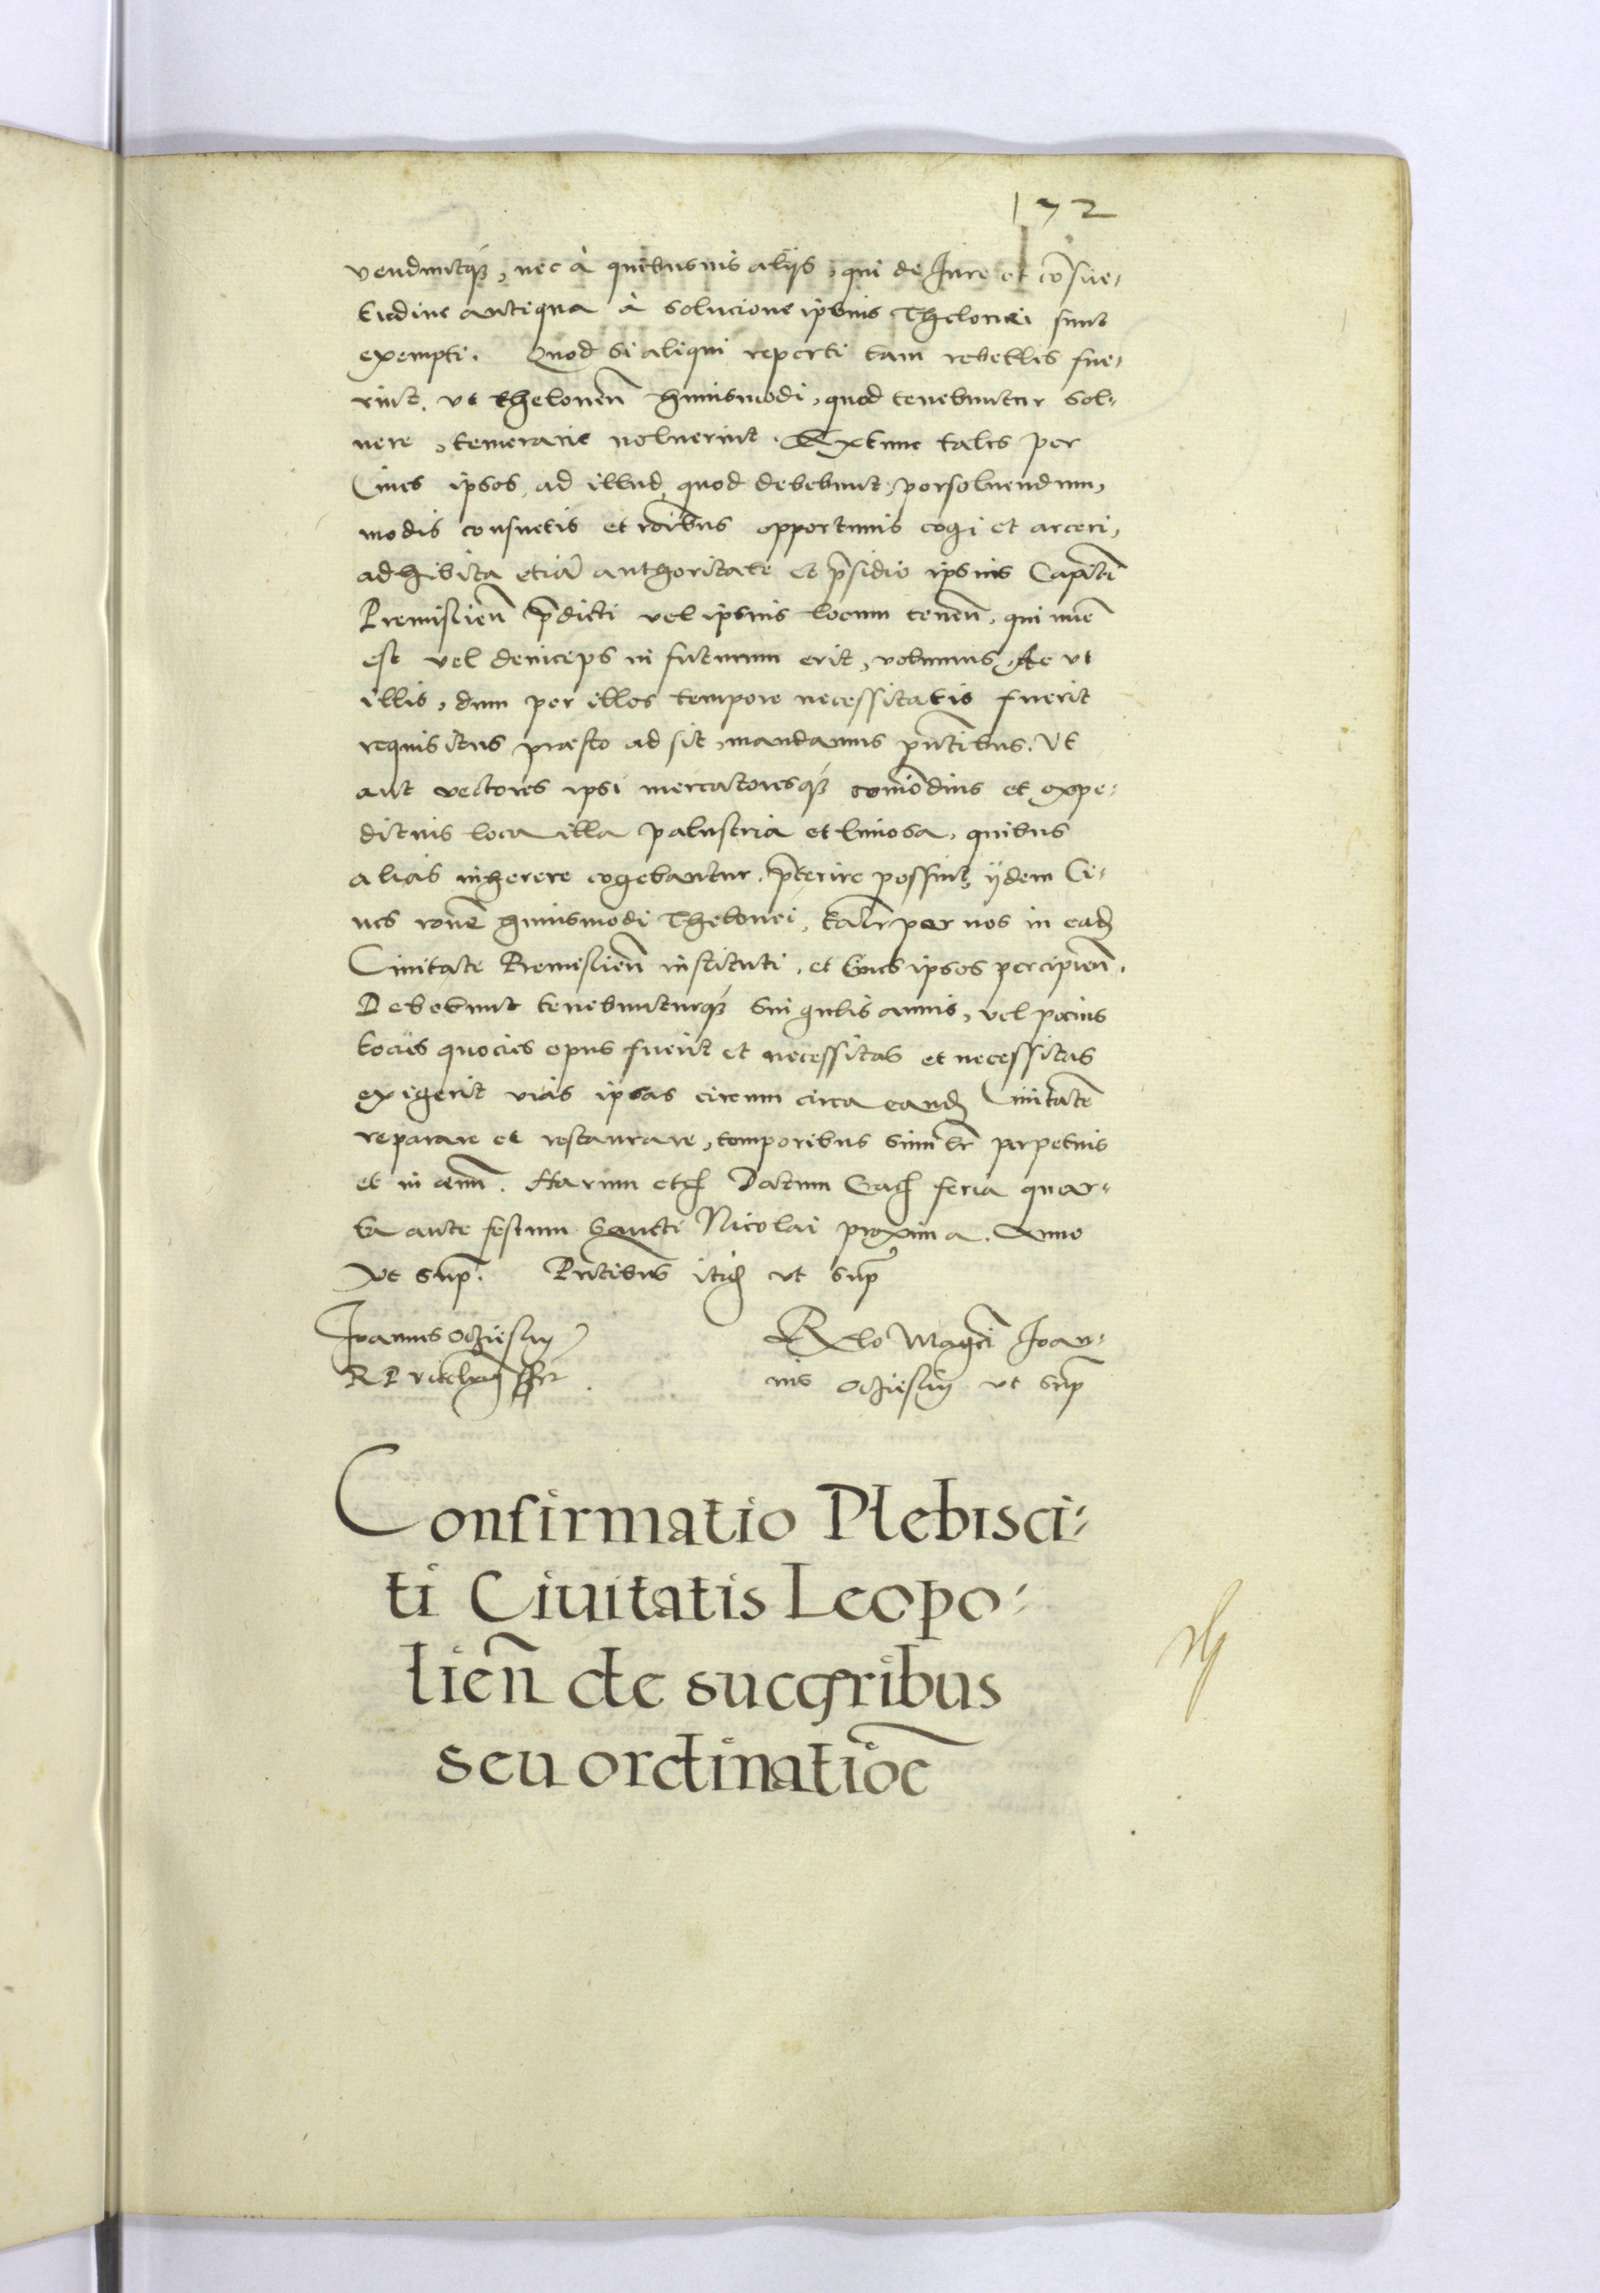 172
venduntq3, nec à quibusuis alijs, qui de Iure et cõsue-
tudine antiqua à solucione ipsius Thelonei sunt
exempti. Quod si aliqui reperti tam rebelles fue-
rint, vt theloneũ huiusmodi, quod tenebuntur sol-
uere, temerarie noluerint. Extunc tales per
Ciues ipsos, ad illud, quod debebunt, persoluendum,
modis consuetis et rõibus opportunis cogi et arceri,
adhibita etiã authoritate et p̃sidio ipsius Capitñ
Premislieñ p̃dicti vel ipsius locum teneñ, qui nũc
est vel deinceps in futurum erit, volumus, Ac vt
illis, dum per illos tempore necessitatis fuerit
requisitus praesto ad sit, mandamus p̃ntibus. Vt
aut vectores ipsi mercatoresq3 com̃odius et expe-
dicius loca illa palustria et limosa, quibus
alias inherere cogebantur, p̃terire possint, ijdem Ci-
ues rõne huiusmodi Thelonei, tal̃r per nos in ead
Ciuitate Premislieñ instituti, et Ciues ipsos percipieñ.
Debebunt tenebunturq3 singulis annis, vel pocius
tocies quocies opus fuerit et necessitas et necessitas
exigerit vias ipsas circum circa eand Ciuitatẽ
reparare et restaurare, temporibus simil̃r perpetuis
et in aeuũ. Harum etc Datum Crac feria quar-
ta ante festum Sancti Nicolai proxima. Anno
Vt sup. Pñtibus itid vt sup
Ioannes Oczieski
R P Vicecanc sst
Relo Magci Ioan-
nis Oczieskij vt sup
Confirmatio Plebisci-
ti Ciuitatis Leopo-
lieñ de succeribus
seu ordinatiõe